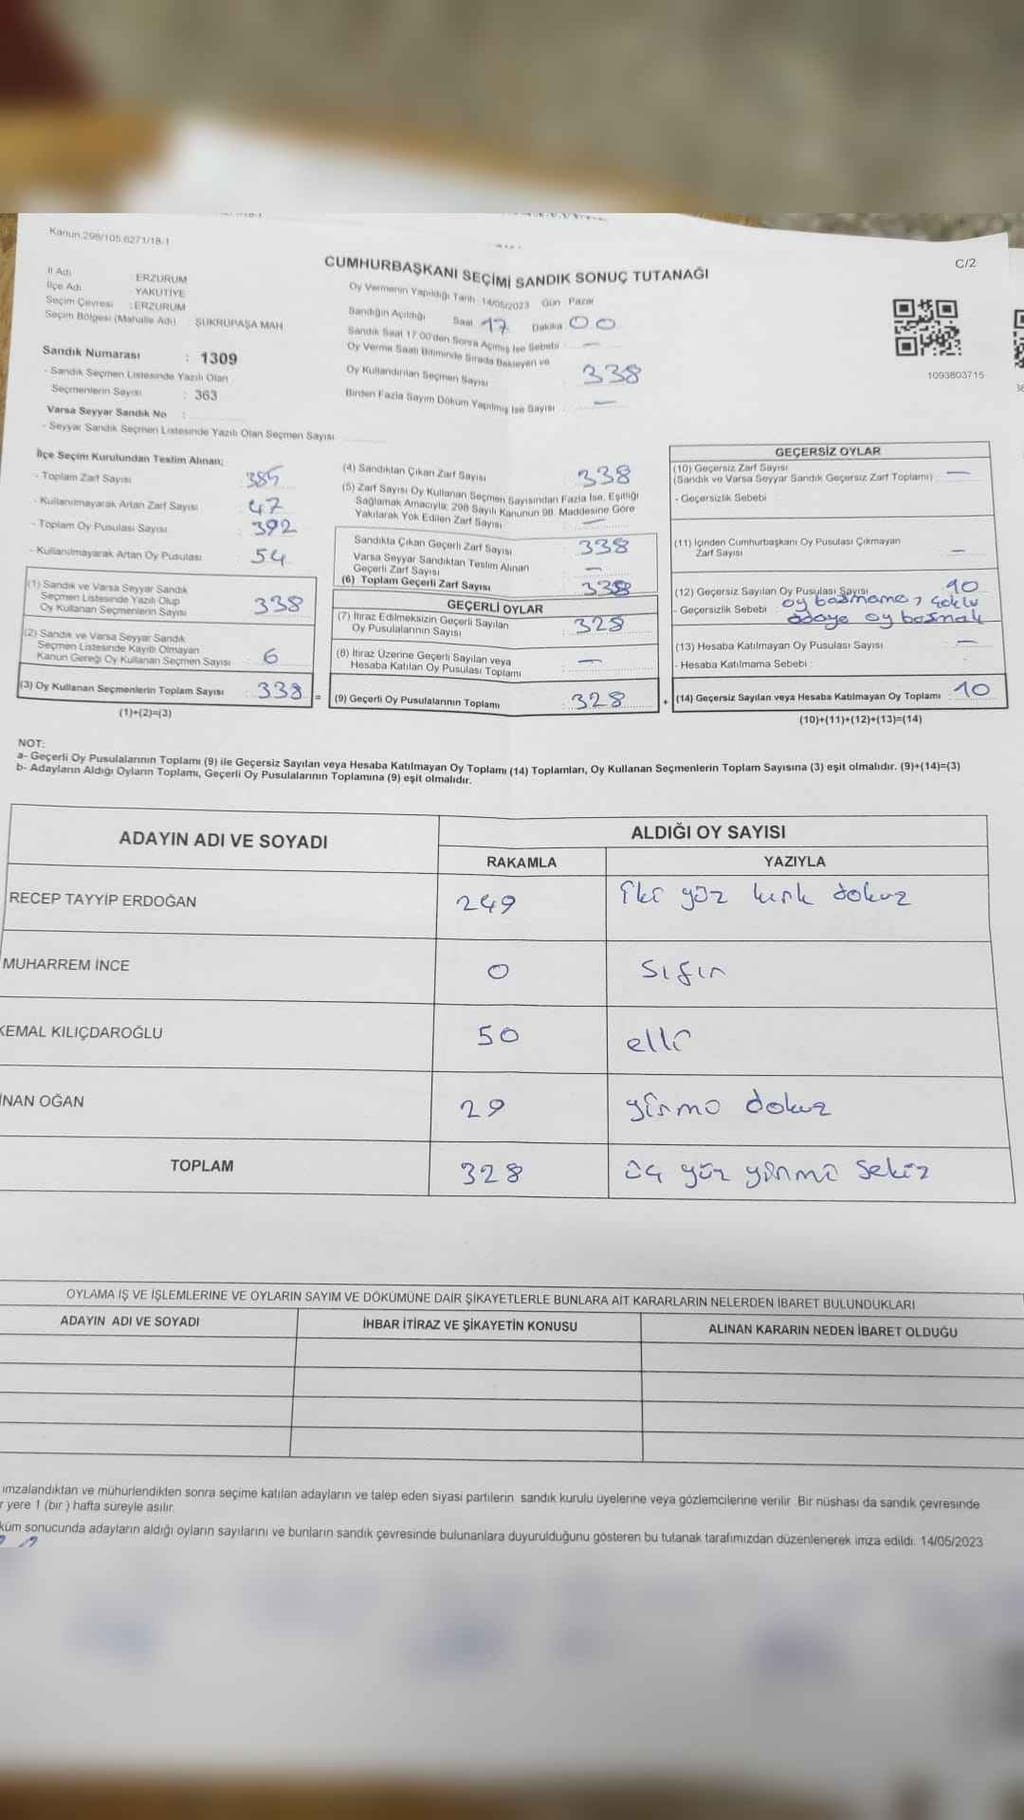 Kanun.298/105.6271/18-1
C/2
CUMHURBAŞKANI SEÇİMİ SANDIK SONUÇ TUTANAĞI
İl Adı : ERZURUM
İlçe Adı : YAKUTİYE
Seçim Çevresi : ERZURUM
Seçim Bölgesi (Mahalle Adı) : ŞÜKRÜPAŞA MAH
Sandık Numarası : 1309
- Sandık Seçmen Listesinde Yazılı Olan
Seçmenlerin Sayısı : 363
Varsa Seyyar Sandık No :
- Seyyar Sandık Seçmen Listesinde Yazılı Olan Seçmen Sayısı
Oy Vermenin Yapıldığı Tarih 14/05/2023 Gün Pazar
Sandığın Açıldığı Saat 17 Dakika 00
Sandık Saat 17:00'den Sonra Açılmış İse Sebebi : —
Oy Verme Saati Bitiminde Sırada Bekleyen ve
Oy Kullandırılan Seçmen Sayısı 338
Birden Fazla Sayım Döküm Yapılmış İse Sayısı : —
1093803715
İlçe Seçim Kurulundan Teslim Alınan;
- Toplam Zarf Sayısı : 385
- Kullanılmayarak Artan Zarf Sayısı : 47
- Toplam Oy Pusulası Sayısı : 392
- Kullanılmayarak Artan Oy Pusulası : 54
(1) Sandık ve Varsa Seyyar Sandık
Seçmen Listesinde Yazılı Olup
Oy Kullanan Seçmenlerin Sayısı : 338
(2) Sandık ve Varsa Seyyar Sandık
Seçmen Listesinde Kayıtlı Olmayan
Kanun Gereği Oy Kullanan Seçmen Sayısı 6
(3) Oy Kullanan Seçmenlerin Toplam Sayısı : 338 =
(1)+(2)=(3)
(4) Sandıktan Çıkan Zarf Sayısı : 338
(5) Zarf Sayısı Oy Kullanan Seçmen Sayısından Fazla İse, Eşitliği
Sağlamak Amacıyla; 298 Sayılı Kanunun 98. Maddesine Göre
Yakılarak Yok Edilen Zarf Sayısı : —
Sandıkta Çıkan Geçerli Zarf Sayısı : 338
Varsa Seyyar Sandıktan Teslim Alınan
Geçerli Zarf Sayısı : —
(6) Toplam Geçerli Zarf Sayısı : 338
GEÇERLİ OYLAR
(7) İtiraz Edilmeksizin Geçerli Sayılan
Oy Pusulalarının Sayısı : 328
(8) İtiraz Üzerine Geçerli Sayılan veya
Hesaba Katılan Oy Pusulası Toplamı : —
(9) Geçerli Oy Pusulalarının Toplamı : 328 +
GEÇERSİZ OYLAR
(10) Geçersiz Zarf Sayısı
(Sandık ve Varsa Seyyar Sandık Geçersiz Zarf Toplamı) : —
- Geçersizlik Sebebi :
(11) İçinden Cumhurbaşkanı Oy Pusulası Çıkmayan
Zarf Sayısı : —
(12) Geçersiz Sayılan Oy Pusulası Sayısı 10
- Geçersizlik Sebebi : oy basmama, çoklu
adaya oy basmak
(13) Hesaba Katılmayan Oy Pusulası Sayısı : —
- Hesaba Katılmama Sebebi :
(14) Geçersiz Sayılan veya Hesaba Katılmayan Oy Toplamı : 10
(10)+(11)+(12)+(13)=(14)
NOT:
a- Geçerli Oy Pusulalarının Toplamı (9) ile Geçersiz Sayılan veya Hesaba Katılmayan Oy Toplamı (14) Toplamları, Oy Kullanan Seçmenlerin Toplam Sayısına (3) eşit olmalıdır. (9)+(14)=(3)
b- Adayların Aldığı Oyların Toplamı, Geçerli Oy Pusulalarının Toplamına (9) eşit olmalıdır.
ADAYIN ADI VE SOYADI ALDIĞI OY SAYISI
RAKAMLA YAZIYLA
RECEP TAYYİP ERDOĞAN 249 iki yüz kırk dokuz
MUHARREM İNCE 0 sıfır
KEMAL KILIÇDAROĞLU 50 elli
İNAN OĞAN 29 yirmo dokuz
TOPLAM 328 üç yüz yirmi sekiz
OYLAMA İŞ VE İŞLEMLERİNE VE OYLARIN SAYIM VE DÖKÜMÜNE DAİR ŞİKAYETLERLE BUNLARA AİT KARARLARIN NELERDEN İBARET BULUNDUKLARI
ADAYIN ADI VE SOYADI İHBAR İTİRAZ VE ŞİKAYETİN KONUSU ALINAN KARARIN NEDEN İBARET OLDUĞU
imzalandıktan ve mühürlendikten sonra seçime katılan adayların ve talep eden siyasi partilerin sandık kurulu üyelerine veya gözlemcilerine verilir. Bir nüshası da sandık çevresinde
r yere 1 (bir) hafta süreyle asılır.
küm sonucunda adayların aldığı oyların sayılarını ve bunların sandık çevresinde bulunanlara duyurulduğunu gösteren bu tutanak tarafımızdan düzenlenerek imza edildi. 14/05/2023